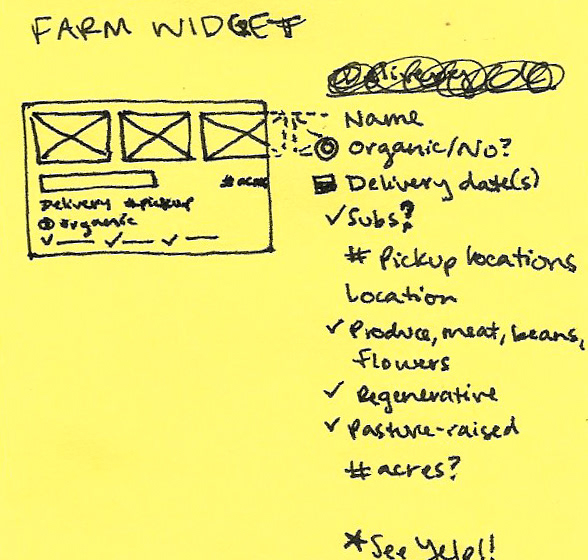 FARM WIDGET
Name
Organic/No?
Delivery date(s)
✓ Subs?
# Pickup locations
Location
✓ Produce, meat, beans,
flowers
✓ Regenerative
✓ Pasture-raised
# acres?
*See Yelp!!
# acres
Delivery # pickup
organic